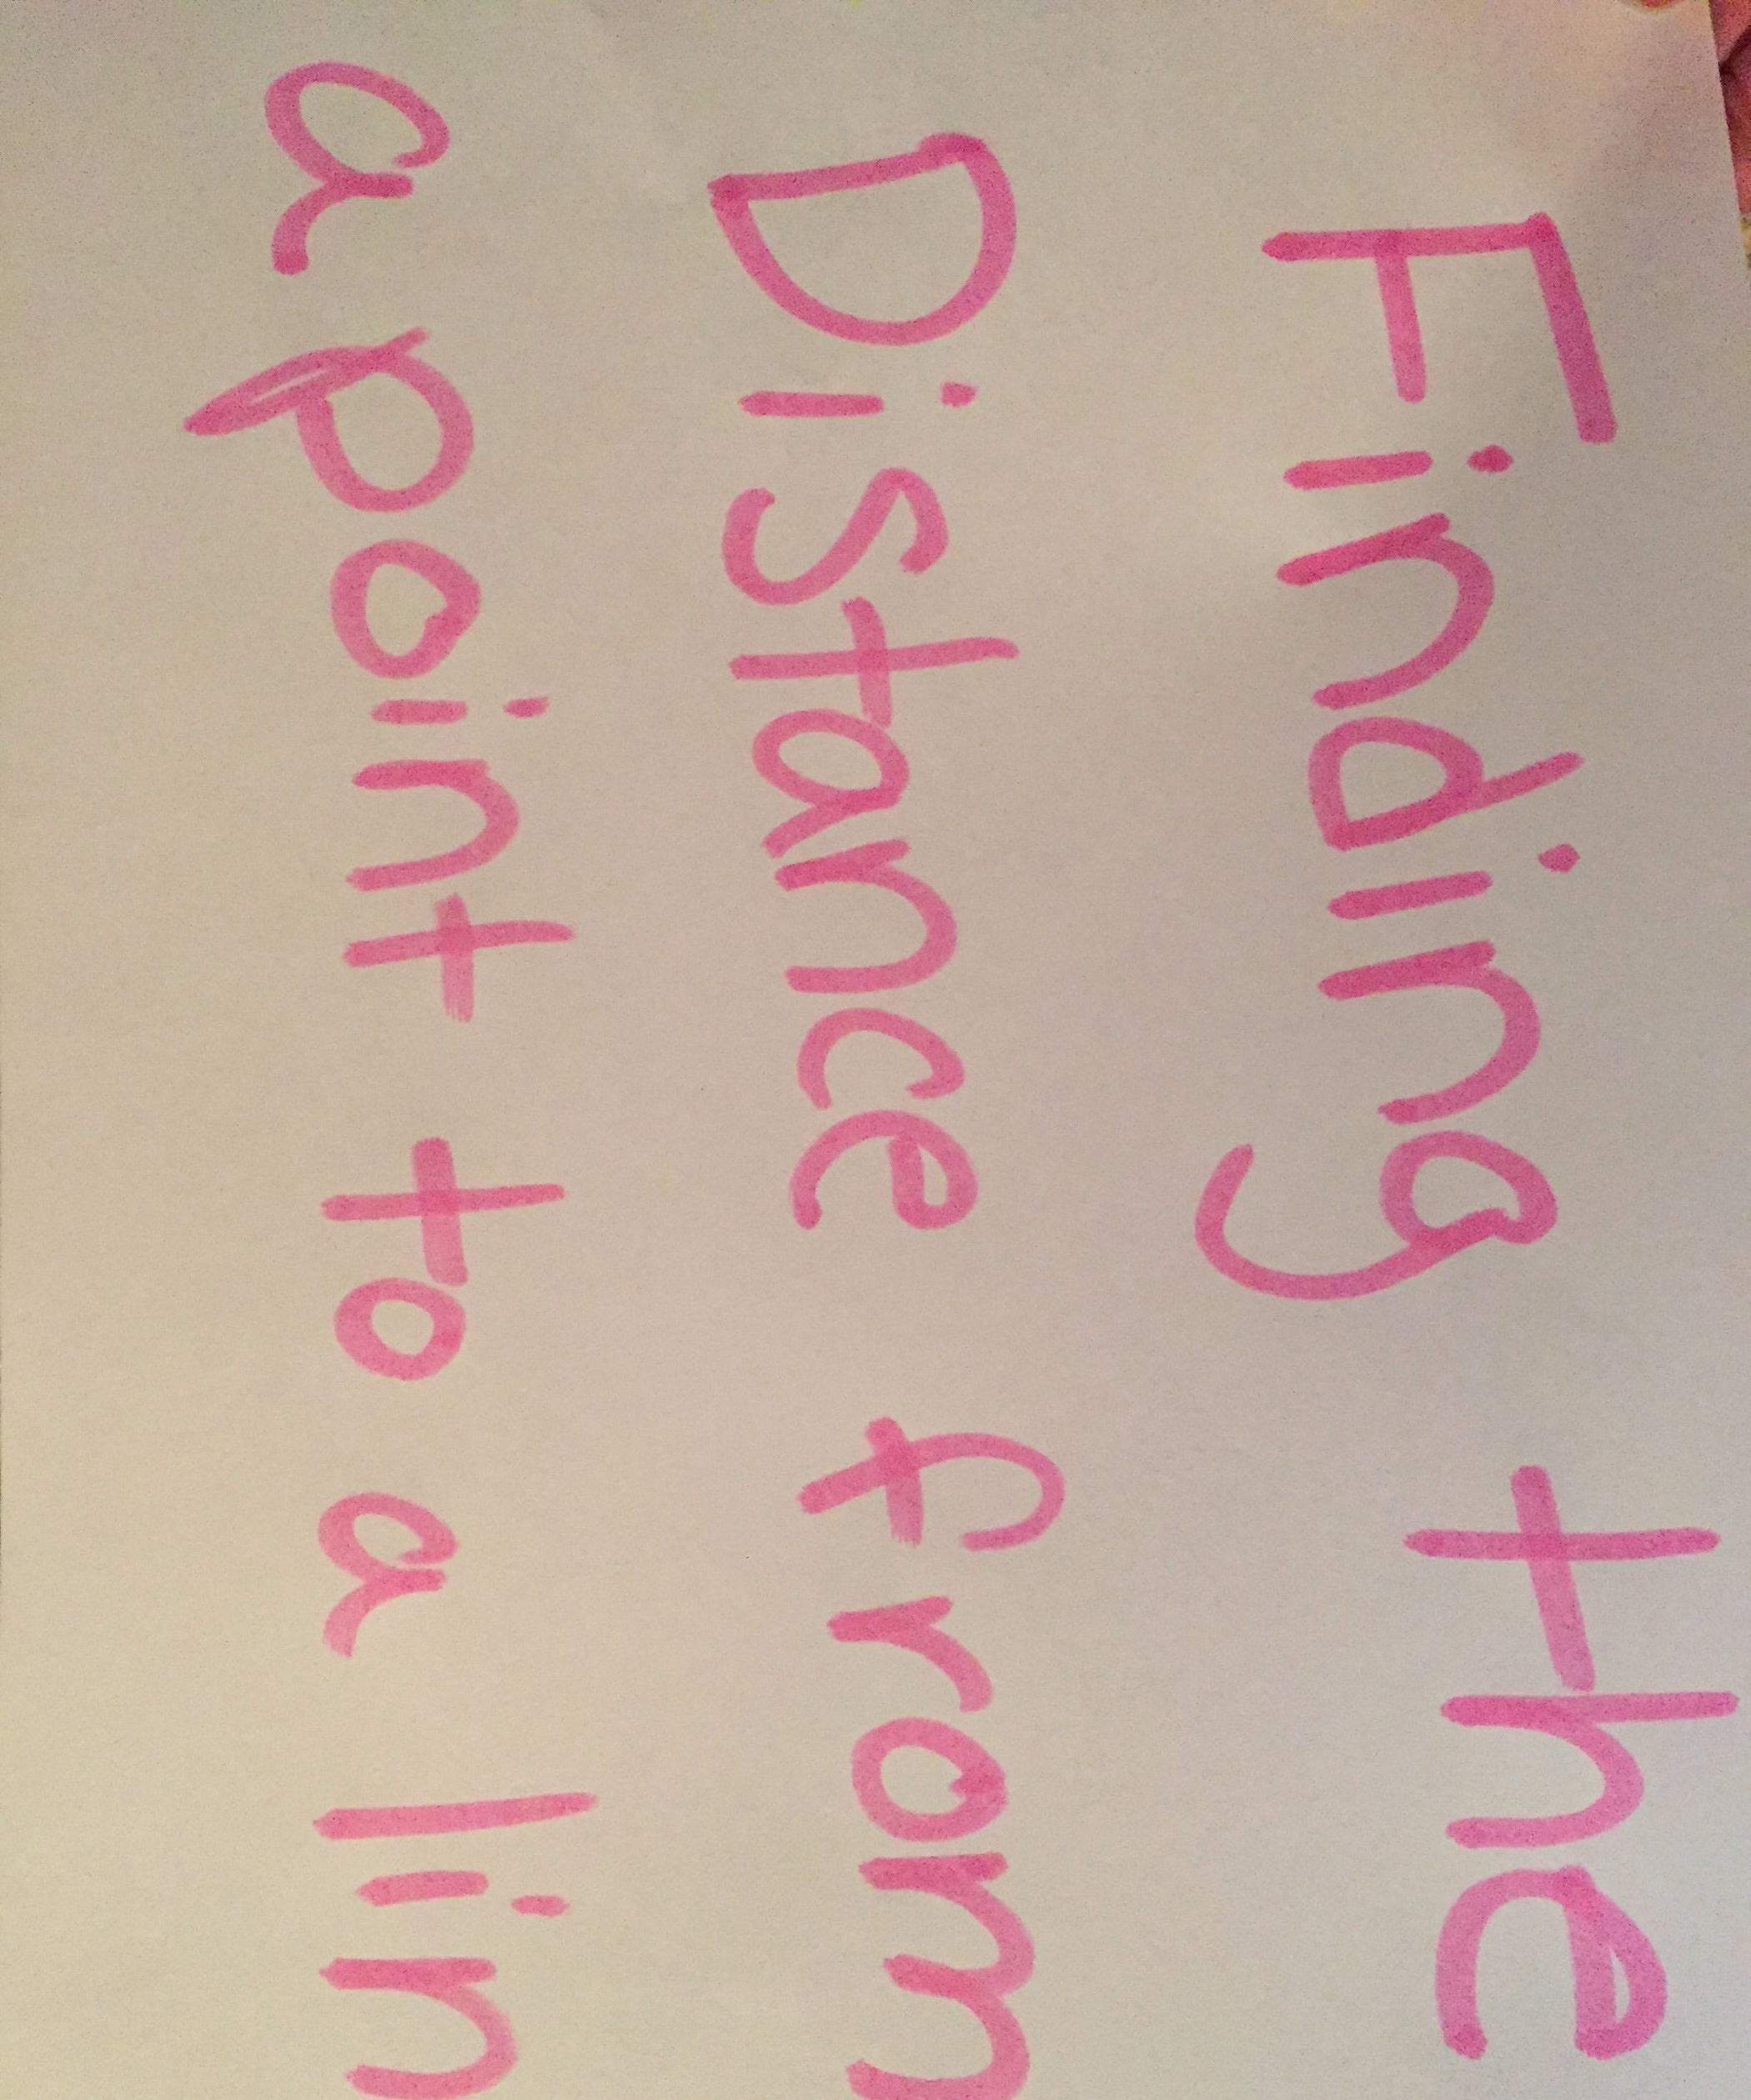 Finding the
Distance from
a point to a lin